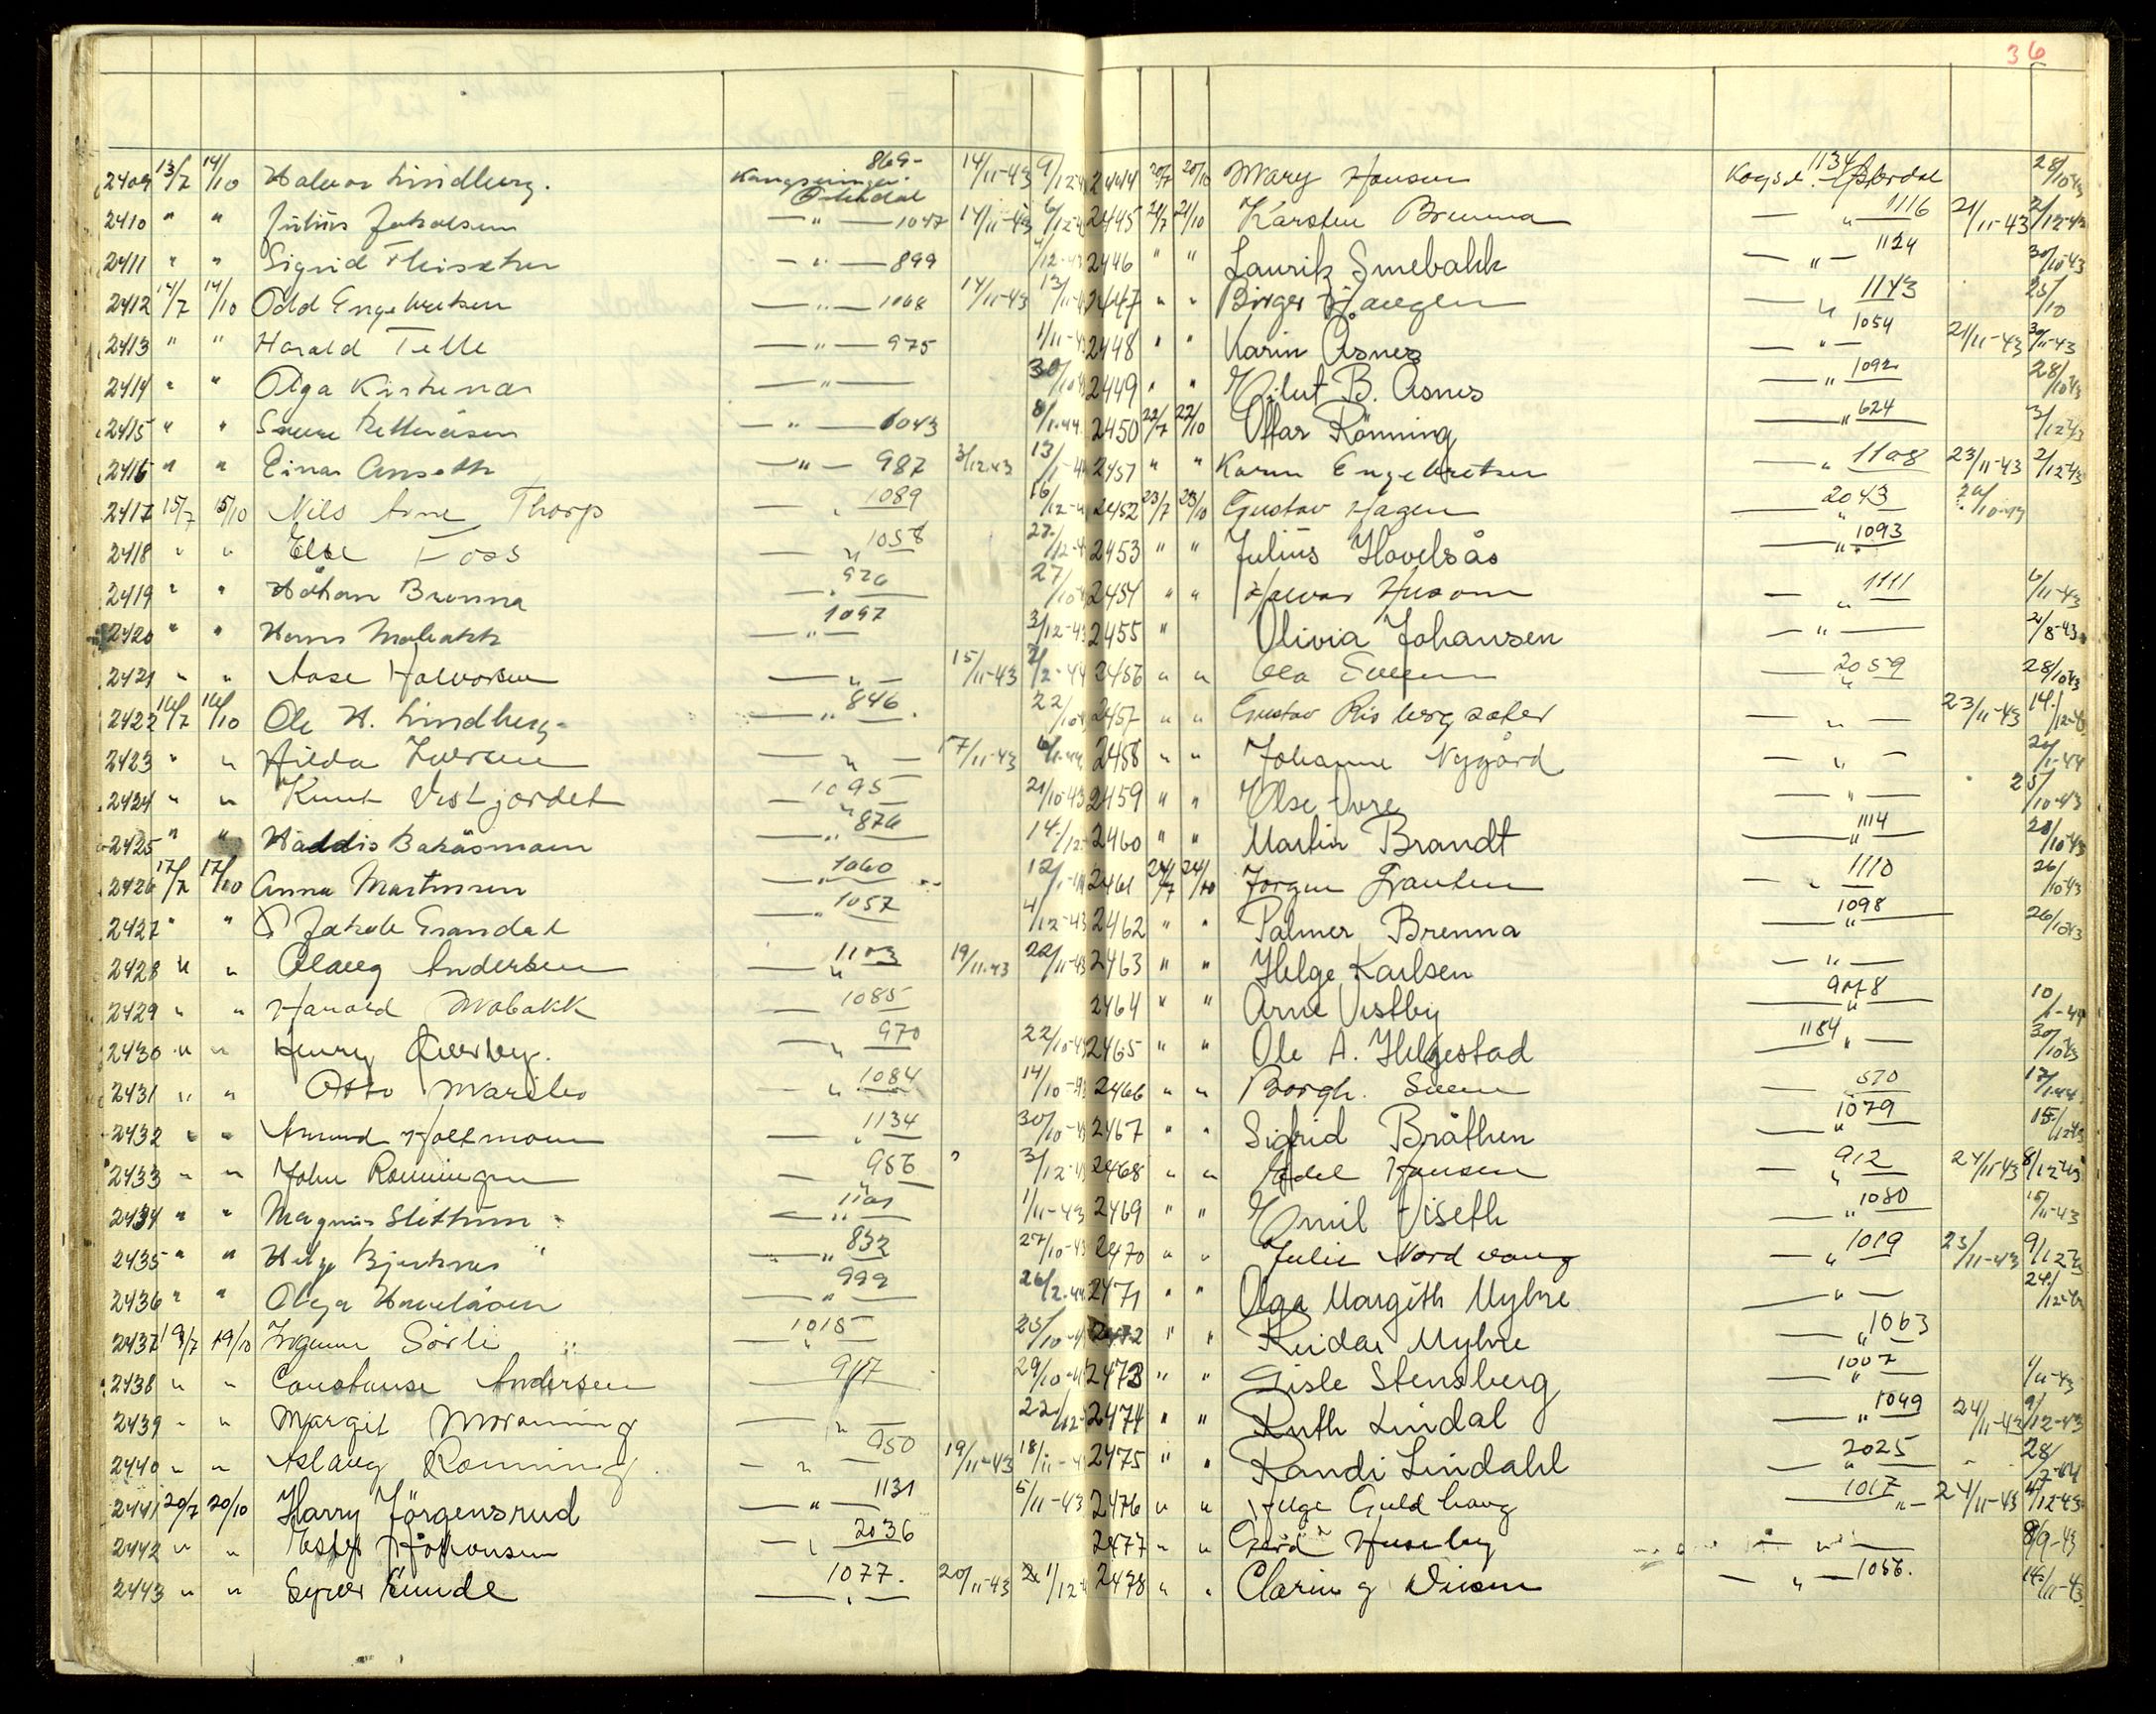 36
2409 13/7 14/10 Halvor Lindberg. Kongsvinger 869- Österdal 14/11-43 9/12-4
2410 " " Julius Jakobsen — " — 1047 14/11-43 6/12-4
2411 " " Sigrid — " — 899 1/12-43
2412 14/7 14/10 Odd Engebretsen — " — 1068 14/11-43 13/11-4
2413 " " Harald Telle — " — 975 1/11-4
2414 " " Olga Kirkenær — " — 30/10-4
2415 " " Sverre — " — 1043 8/1-44.
2416 " " Einar Anseth — " — 987 3/12 43 13/1-4
2417 15/7 15/10 Nils Arne Thorp — " — 1089 16/12-4
2418 " " Else Foss — " — 1058 27/12-4
2419 " " Håkon Brenna — " — 926 27/10-4
2420 " " Hans Mobakk — " — 1097 3/12-43
2421 " " Aase Halvorsen — " — 15/11-43 2/2-44
2422 16/7 16/10 Ole H. Lindberg — " — 846 22/10-4
2423 " " Hilda Iversen — " — 17/11-43 6/1-44
2424 " " Knut Vestjordet — " — 1095 21/10-43
2425 " " Haddis Bakåsmoen — " — 876 14/12-
2426 17/7 17/10 Anna Martinsen — " — 1060 12/1-44
2427 " " Jakob Grandal — " — 1057 4/12-43
2428 " " Olaug Andersen — " — 1103 19/11-43 22/11-43
2429 " " Harald Mobakk — " — 1085
2430 " " Henry Överby. — " — 970 22/10-43
2431 " " Otto Marsbo — " — 1084 14/10-43
2432 " " Amund Holtmoen — " — 1134 30/10-43
2433 " " John Rönningen — " — 956 3/12-4
2434 " " Magnus Slettum — " — 1101 1/11-43
2435 " " Helge Bjerknes — " — 832 27/10-43
2436 " " Olga Hovelsåsen — " — 999 26/2.44
2437 19/7 19/10 Ingunn Sörli — " — 1015 25/10-4
2438 " " Constanse Andersen — 917 29/10-4
2439 " " Margit — " — 22/12-
2440 " " Aslaug Rönning — " — 950 19/11-43 18/11-4
2441 20/7 20/10 Harry Jörgensrud — " — 1131 5/11-43
2442 " " Ester Håkonsen — " — 2036
2443 " " Syver Eunde — " — 1077. 20/11-43 21/12-4
2444 20/7 20/10 Mary Hansen Kogsv. 1134 Österdal 28/10 43
2445 21/7 21/10 Karsten Brenna — " — 1116 21/11-43 2/12-43
2446 " " Laurik Smebakk — " — 1124 30/10-43
2447 " " Birger Haugen — " — 1143 25/10
2448 " " Karin Åsnes — " — 1054 21/11-43 30/11-43
2449 " " Eilut B. Åsnes — " — 1092 28/10 43
2450 22/7 22/10 Ottar Rönning — " — 624 3/12 43
2451 " " Karin Engebretsen — " — 1108 23/11-43 2/12-43
2452 23/7 23/10 Gustav Hagen — " — 2043
2453 " " Julius Hovelsås — " — 1093
2454 " " Halvor Husom — " — 1111 6/11-43
2455 " Olivia Johansen — " — 2/8-43
2456 " " Ola — " — 2059 28/10 43
2457 " " Gustav Risbergsæter — " — 23/11-43 14/12-43
2458 " " Johanne Nygård — " — 20/1-44
2459 " " Else — " — 25/10-43
2460 " " Martin Brandt — " — 1114 28/10-43
2461 24/7 24/10 Jörgen — " — 1110 26/10-43
2462 " " Palmer Brenna — " — 1098 26/10 43
2463 " " Helge Karlsen — " —
2464 " " Arne Vestby — " — 9078 10/1-44
2465 " " Ole A. Helgestad 1184 — " — 30/10 43
2466 " " Borgh. Sveen — 870 17/1-44
2467 " " Sigrid Bråthen — " — 1079 15/12 43
2468 " " Edel Hansen — " — 912 24/11-43 8/12 43
2469 " " Emil Viseth — " — 1080 15/11-43
2470 " " Julie Nordvang — " — 1019 23/11-43 9/12 43
2471 " " Olga Margith Myhre — " — 24/12-43
2472 " " Reidar Myhre — " — 1063
2473 " " Gisle Stensberg — " — 1007 1/11-43
2474 " " Ruth Lindal — " — 1049 24/11-43 9/12-43
2475 " " Randi Lindahl — " — 2025 28/7-44
2476 " " Helge Guldhaug — 1017 " — 24/11-43 4/12-43
2477 " " Gerd Huseby — " — 8/9-43
2478 " " — " — 1056. 14/11-43